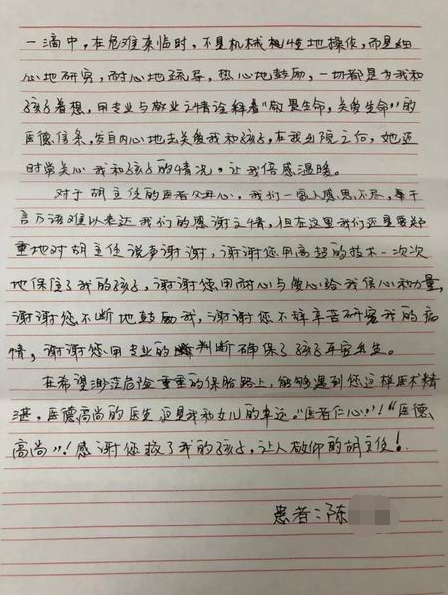 一滴中,在危难来临时,不是机械惯性地操作,而是细
心地研究,耐心地疏导,热心地鼓励,一切都是为我和
孩子着想,用专业与敬业之情诠释着“敬畏生命,关爱生命”的
医德信条,发自内心地去关爱我和孩子,在我出院之后,她还
时常关心我和孩子的情况,让我倍感温暖。
对于胡主任的医者仁心,我们一家人感恩不尽,千
言万语难以表达我们的感谢之情,但在这里我们还是要郑
重地对胡主任说声谢谢,谢谢您用高超的技术一次次
地保住了我的孩子,谢谢您用耐心与爱心给我信心和力量,
谢谢您不断地鼓励我,谢谢您不辞辛苦研究我的病
情,谢谢您用专业的判断确保了孩子平安出生。
在希望渺茫危险重重的保胎路上,能够遇到您这样医术精
湛,医德高尚的医生是我和女儿的幸运。“医者仁心”!“医德
高尚”!感谢您救了我的孩子,让人敬仰的胡主任!
患者:陈